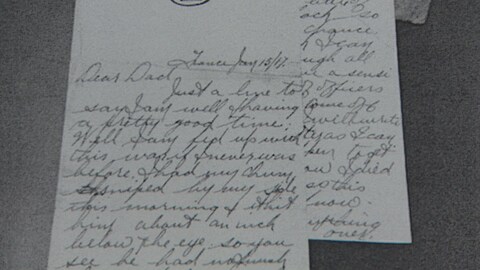 France Jan 15/17.
Dear Dad
Just a line to
say I am well & having
a pretty good time.
Well I am fed up with
this war if I never was
before. I had my chum
sniped by my side
this morning & it hit
him about an inch
below the eye so you
see he had not much
so
chance
I can
all
a sensi
officers
some of
will write
as I can
to get
I died
so this
now
ones.